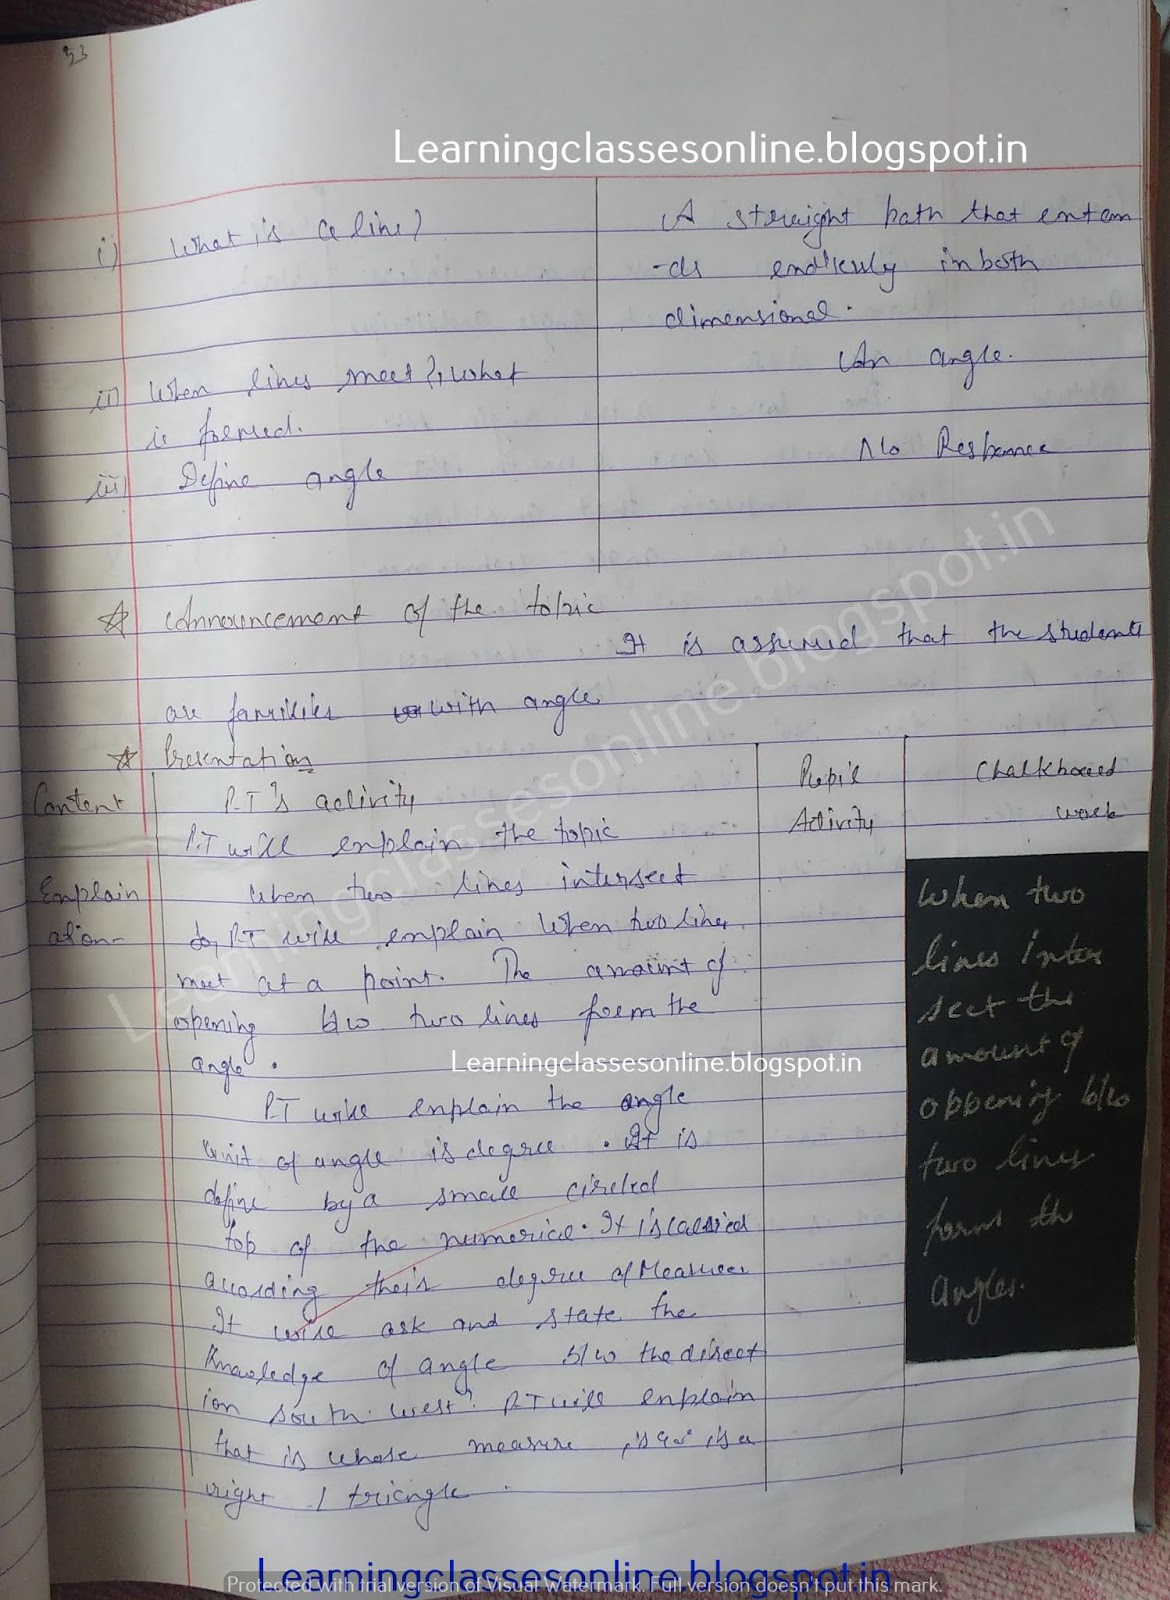 53
Learningclassesonline.blogspot.in
i) What is a line?
A straight path that exten
-ds endlessly in both
dimensional.
ii) When lines meet, what
is formed.
An angle.
iii) Define angle
No Response
Announcement of the topic
It is assumed that the students
are familier with angle
Presentation
Content
P.T's activity
Pupil
Activity
Chalkboard
work
P.T will explain the topic
Explain
ation-
When two lines intersect
P.T will explain When two lines
meet at a point. The amount of
opening b/w two lines form the
angle.
Learningclassesonline.blogspot.in
P.T will explain the angle
Unit of angle is degree. It is
define by a small circled
top of the numerical. It is
according their degree of Measures
It will ask and state the
Knowledge of angle b/w the direct
ion south west? P.T will explain
that is whose measure is 90° is a
right / triangle.
When two
lines inter
sect the
amount of
oppening b/w
two lines
form the
angles.
Learningclassesonline.blogspot.in
Learningclassesonline.blogspot.in
Protected with trial version of Visual Watermark. Full version doesn't put this mark.